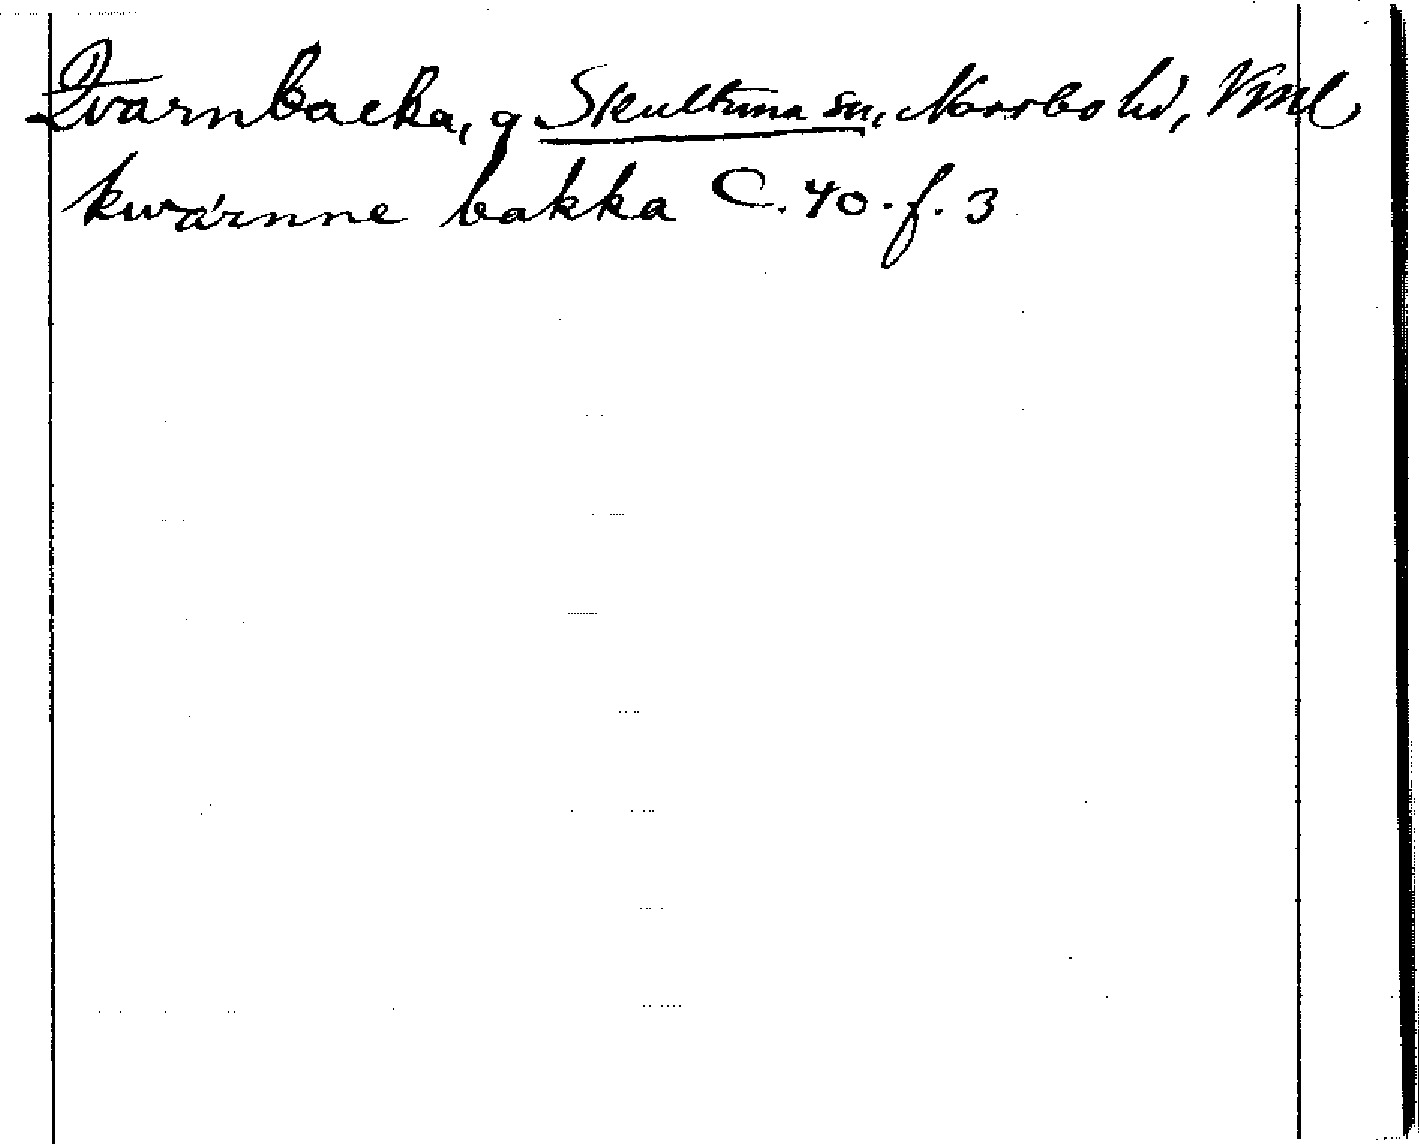 Qvarnbacka, g Skultuna sn, Norrbo hd, Vml
kwárnne bakka C. 40. f. 3